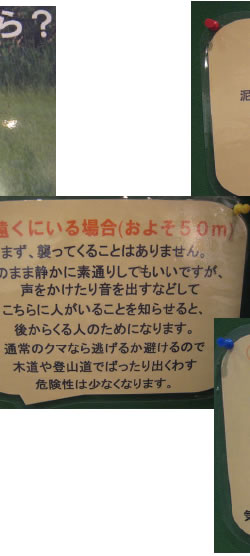 ら?
泥
遠くにいる場合(およそ50m)
まず、襲ってくることはありません。
のまま静かに素通りしてもいいですが、
声をかけたり音を出すなどして
こちらに人がいることを知らせると、
後からくる人のためになります。
通常のクマなら逃げるか避けるので
木道や登山道でばったり出くわす
危険性は少なくなります。
気